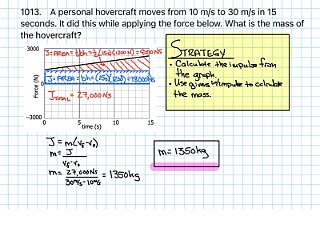 1013. A personal hovercraft moves from 10 m/s to 30 m/s in 15
seconds. It did this while applying the force below. What is the mass of
the hovercraft?
3000
Force (N)
-3000
0 5 10 15
time (s)
J=AREA=½bh=½(15s)(1200N)=9000Ns
J=AREA=bh=(15s)(1200)=18000Ns
J_TOTAL=27,000Ns
STRATEGY
• Calculate the impulse from
the graph.
• Use givens & impulse to calculate
the mass.
J=m(v_f-v_o)
m=J/(v_f-v_o)
m=27,000Ns/(30m/s-10m/s)=1350kg
m=1350kg